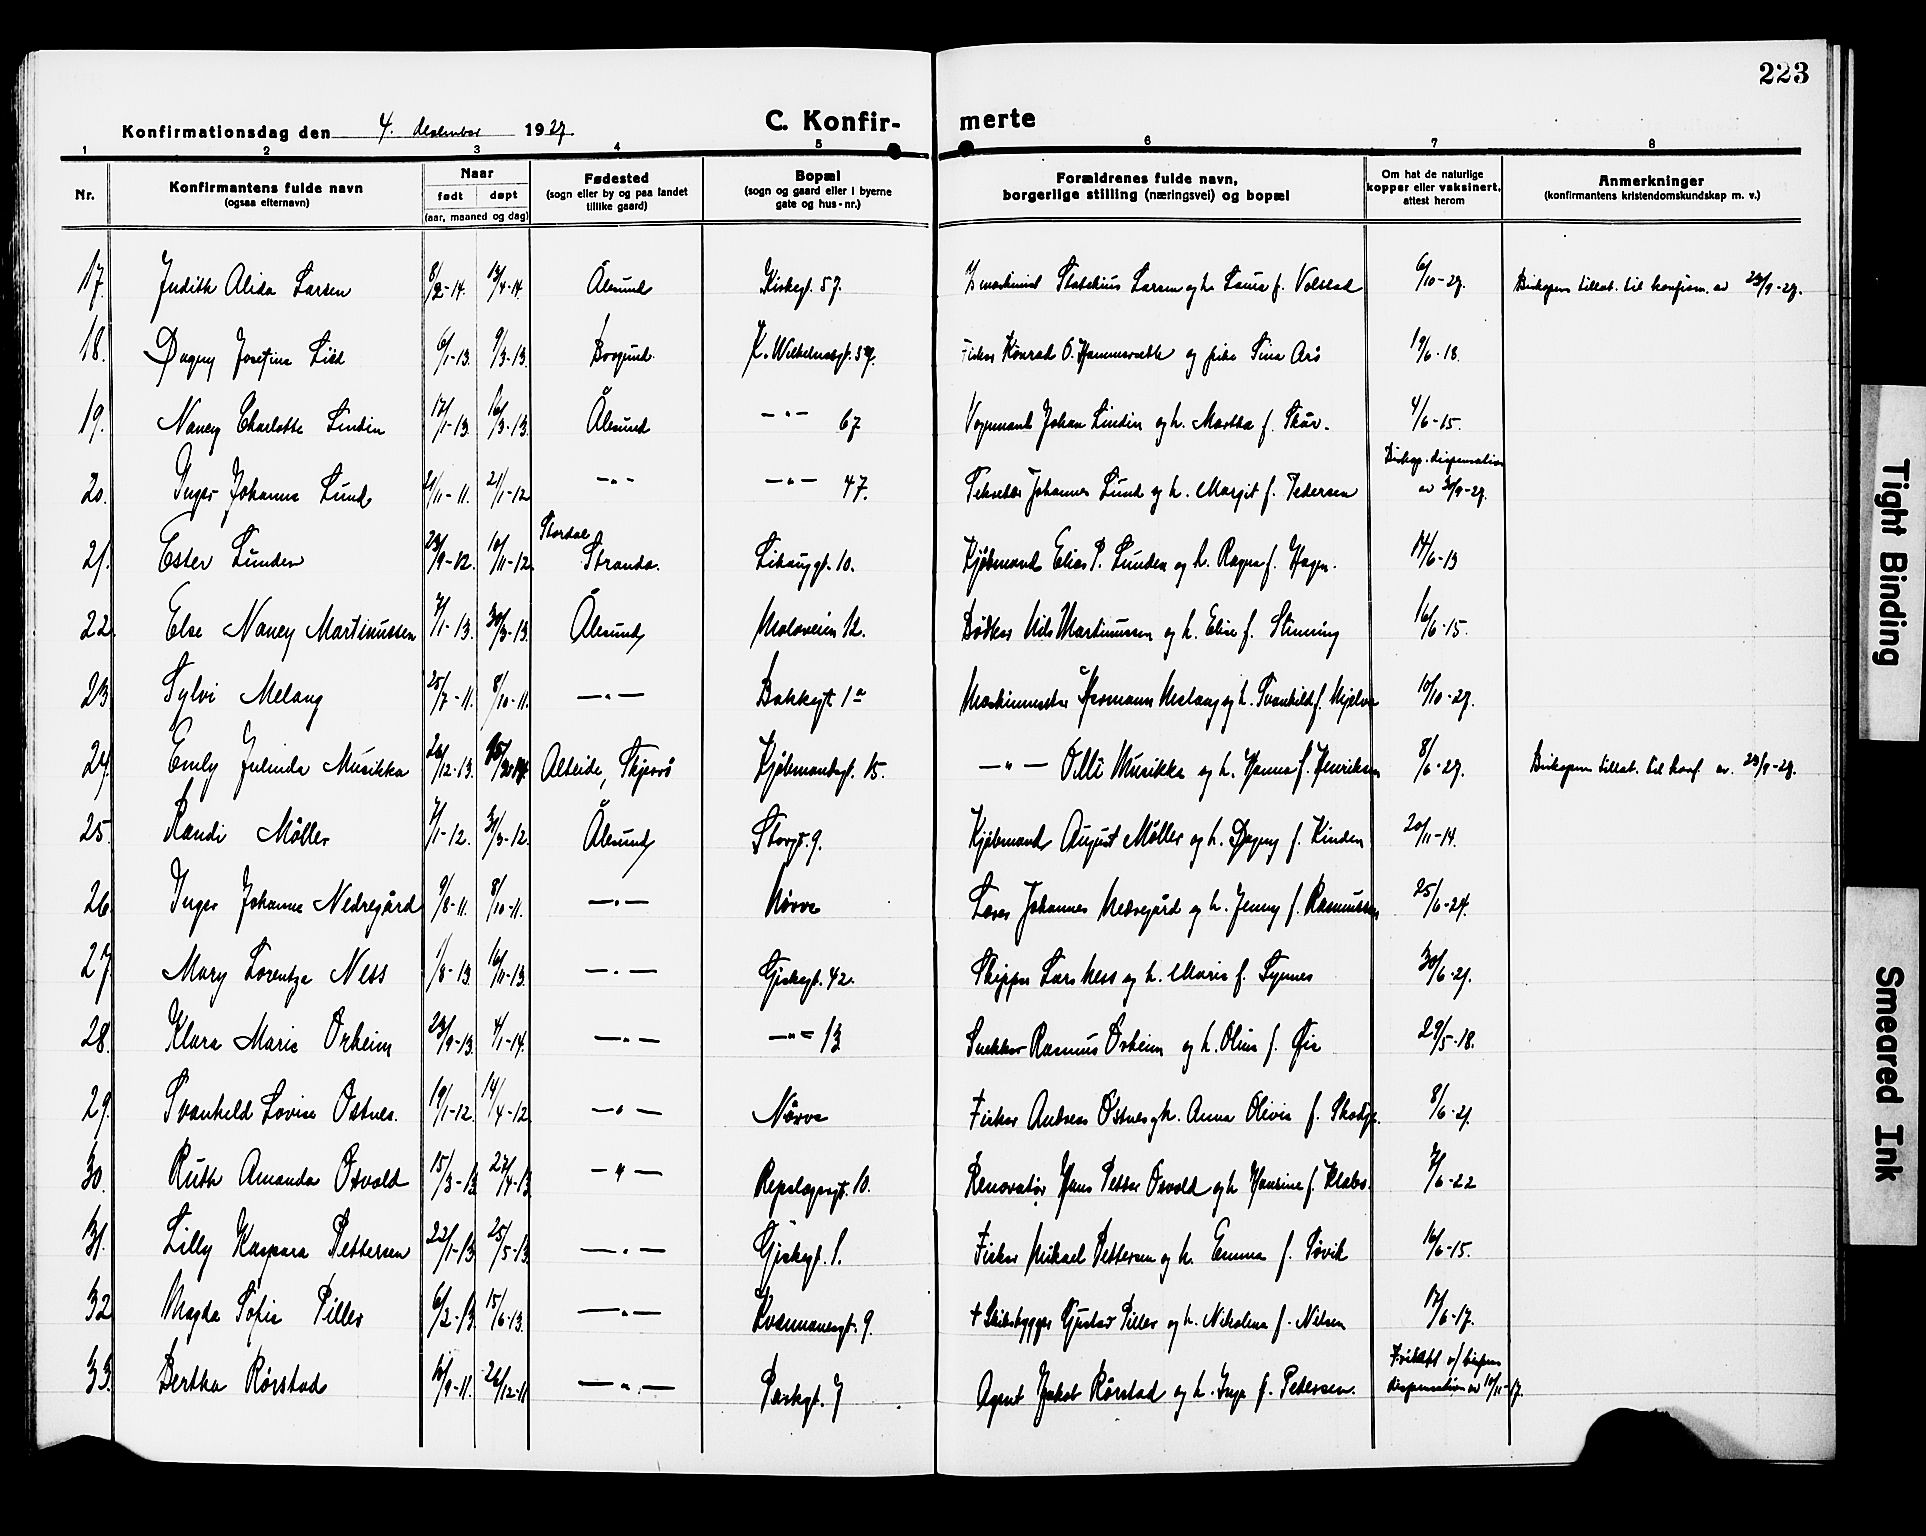 223
Konfirmationsdag den 4. desember 1927.
C. Konfirmerte
1 2 3 4 5 6 7 8
Nr.
Konfirmantens fulde navn
(ogsaa efternavn)
Naar
født døpt
(aar, maaned og dag)
Fødested
(sogn eller by og paa landet
tillike gaard)
Bopæl
(sogn og gaard eller i byerne
gate og hus-nr.)
Forældrenes fulde navn,
borgerlige stilling (næringsvei) og bopæl
Om hat de naturlige
kopper eller vaksinert,
attest herom
Anmerkninger
(konfirmantens kristendomskundskap m. v.)
17. Judith Alida Larsen 8/2-14. 13/4-14. Ålesund Kirkegt. 57. Larsen og h. Laura f. Volstad 6/10-27. Biskopens tillat. til konfirm. av 23/9-27.
18. Dagny Josefine Lied 6/1-13. 9/3-13. Borgund K. Wilhelmsgt. 59. Fisker Konrad O. Hammersæth og pike Sina Arø 19/6-18.
19. Nancy Charlotte Lindin 17/1-13. 16/3-13. Ålesund -"- 67 Vognmand Johan Lindin og h. Martha f. Skår. 4/6-15.
20. Inger Johanne Lund 21/11-11. 21/1-12 -"- -"- 47. Johannes Lund og h. Margit f. Pedersen Biskop. dispensation av 30/9-27.
21. Ester Lunden 28/9-12. 10/11-12. Stordal Stranda. Kjøbmand Elias P. Lunden og h. Ragna f. 14/6-13
22. Else Nancy Martinussen 7/1-13. 30/3-13. Ålesund Moloveien 12. Bødker Nils Martinussen og h. Elise f. Stenning 16/6-15.
23 Sylvi Melang 25/7-11. 8/10-11. -"- Bakkegt. 1a Maskinmester Hermann Melang og h. Svanhild f. Hjelva 10/10-27.
24. Emly Julinda Musikka 26/12-13. Alteide, Skjervø Kjøbmandsgt. 15. -"- Olli Musikka og h. Hanna f. Henriksen 8/6-27. Biskopens tillat. til konf. av 23/9-27.
25. Randi Møller 7/1-12. 31/3-12. Ålesund Storgt. 9. Kjøbmand August Møller og h. Dagny f. Kinden 20/11-14.
26. Inger Johanne Nedregård 9/8-11. 8/10-11. -"- Nørve Johannes Nedregård og h. Jenny f. Rasmussen 25/6-24.
27. Mary Lorentze Ness 1/8-13. 16/11-13. -"- Giskegt. 42. Skipper Lars Ness og h. Marie f. Synnes 30/6-21.
28. Klara Marie Orheim 23/9-13. 4/1-14. -"- -"- 13 Snekker Rasmus Orheim og h. Olina f. Øie 29/5-18.
29. Svanhild Lovise Ostnes. 19/1-12. 14/4-12. -"- Nørve Fisker Andreas Ostnes og h. Anna Olivia f. Skodje. 8/6-21.
30. Ruth Amanda Osvold 15/3-13 27/4-13 -"- Repslagergt. 10. Renovatør Hans Petter Osvold og h. Hansine f. Klebo. 7/6-22
31. Lilly Kaspara Pettersen 22/1-13 25/5-13. -"- Giskegt. 1. Fisker Mikael Pettersen og h. Emma f. Søvik 16/6-15.
32 Magda Sofie Piller 6/2-13. 15/6-13. -"- Kvennanesgt. 9. + Skibsbygger Gustav Piller og h. Nikoline f. Nilsen 17/6-17.
33. Bertha Rørstad 10/9-11. 26/12-11 -"- Parkgt. 7 Agent Jakob Rørstad og h. Inga f. Pedersen. dispensation av 10/11-17.
Tight Binding
Smeared Ink